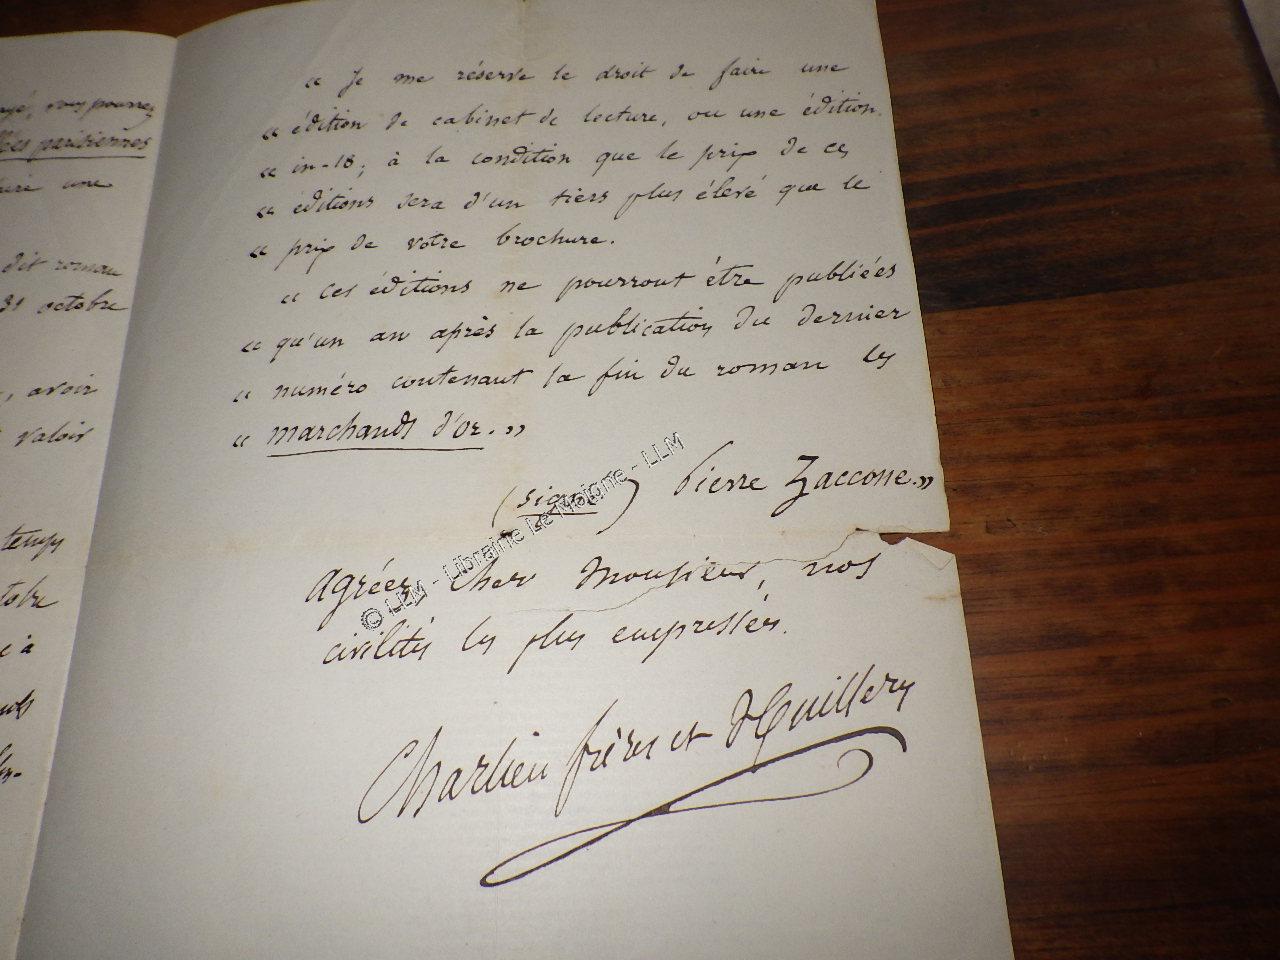 ayé, vous pourrez
ées parisiennes
uire une
dit roman
31 octobre
, avoir
valoir
temps
tobre
e à
"Je me réserve le droit de faire une
" édition de cabinet de lecture, ou une édition
" in-18; à la condition que le prix de ces
" éditions sera d'un tiers plus élevé que le
" prix de votre brochure.
" Ces éditions ne pourront être publiées
" qu'un an après la publication du dernier
" numéro contenant la fin du roman les
" marchands d'or."
(signé) Pierre Zaccone."
Agréez, Cher Monsieur, nos
civilités les plus empressées.
Charlieu frères et Huillery
© LLM - Librairie Le Moigne - LLM